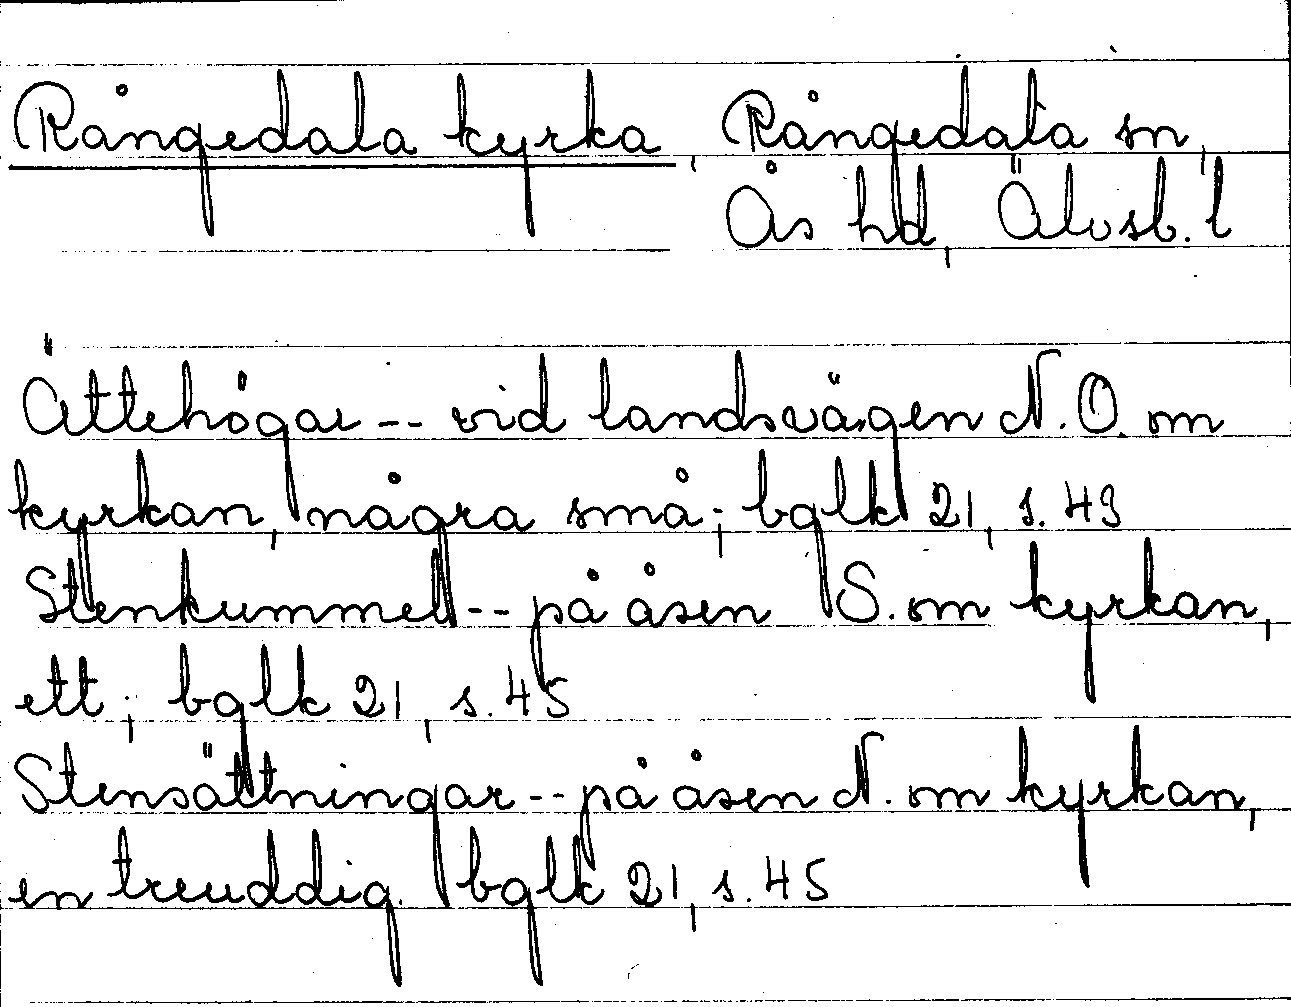 Rångedala kyrka, Rångedala sn,
Ås hd, Älvsb. l
Ättehögar -- vid landsvägen N.O. om
kyrkan, några små; bglk 21, s. 43
Stenkummel -- på åsen S. om kyrkan,
ett; bglk 21, s. 45
Stensättningar -- på åsen N. om kyrkan,
en treuddig. bglk 21, s. 45